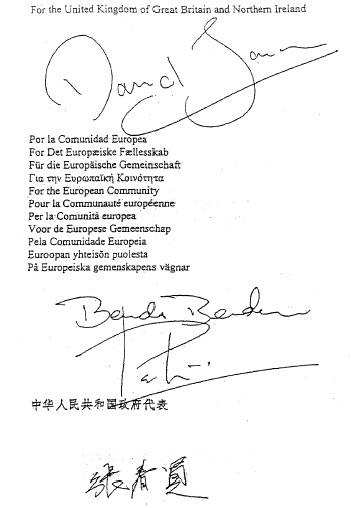 For the United Kingdom of Great Britain and Northern Ireland
David
Por la Comunidad Europea
For Det Europæiske Fællesskab
Für die Europäische Gemeinschaft
Για την Ευρωπαϊκή Κοινότητα
For the European Community
Pour la Communauté européenne
Per la Comunità europea
Voor de Europese Gemeenschap
Pela Comunidade Europeia
Euroopan yhteisön puolesta
På Europeiska gemenskapens vägnar
中华人民共和国政府代表
张春贤